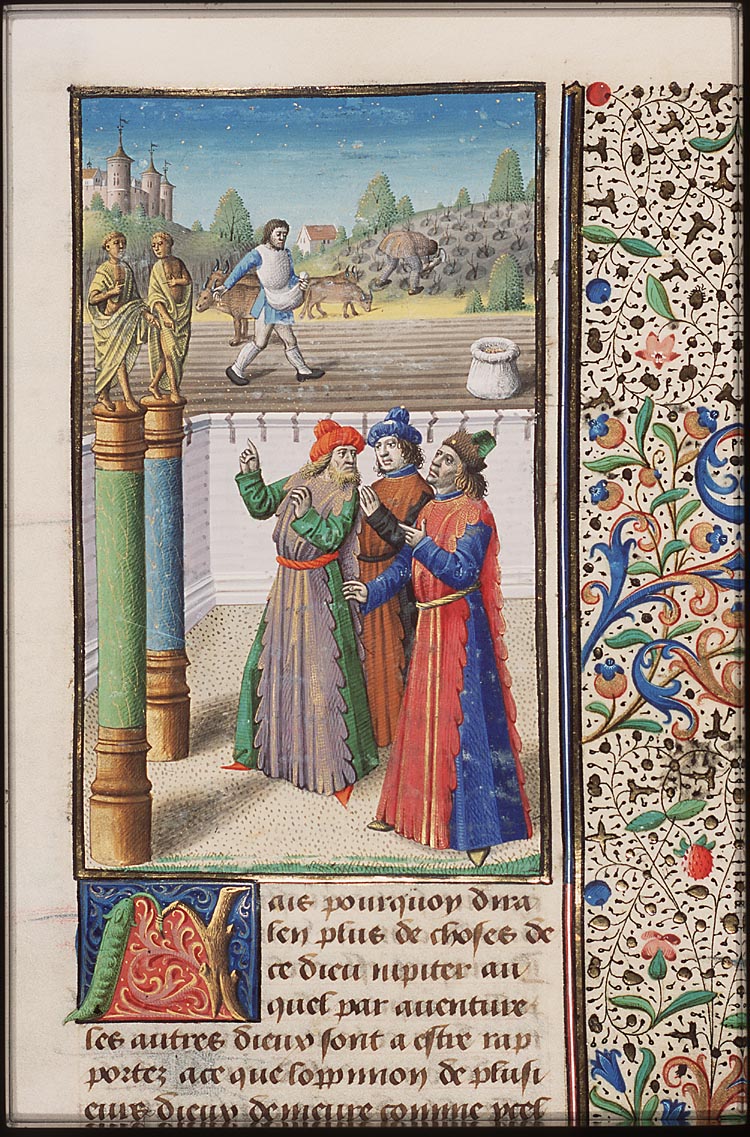 Mais pourquoy dira
len plus de choses de
ce dieu iupiter au
quel par auenture
les autres dieux sont a estre rap
portez a ce que loppinion de plusi
eurs dieux demeure comme ycel